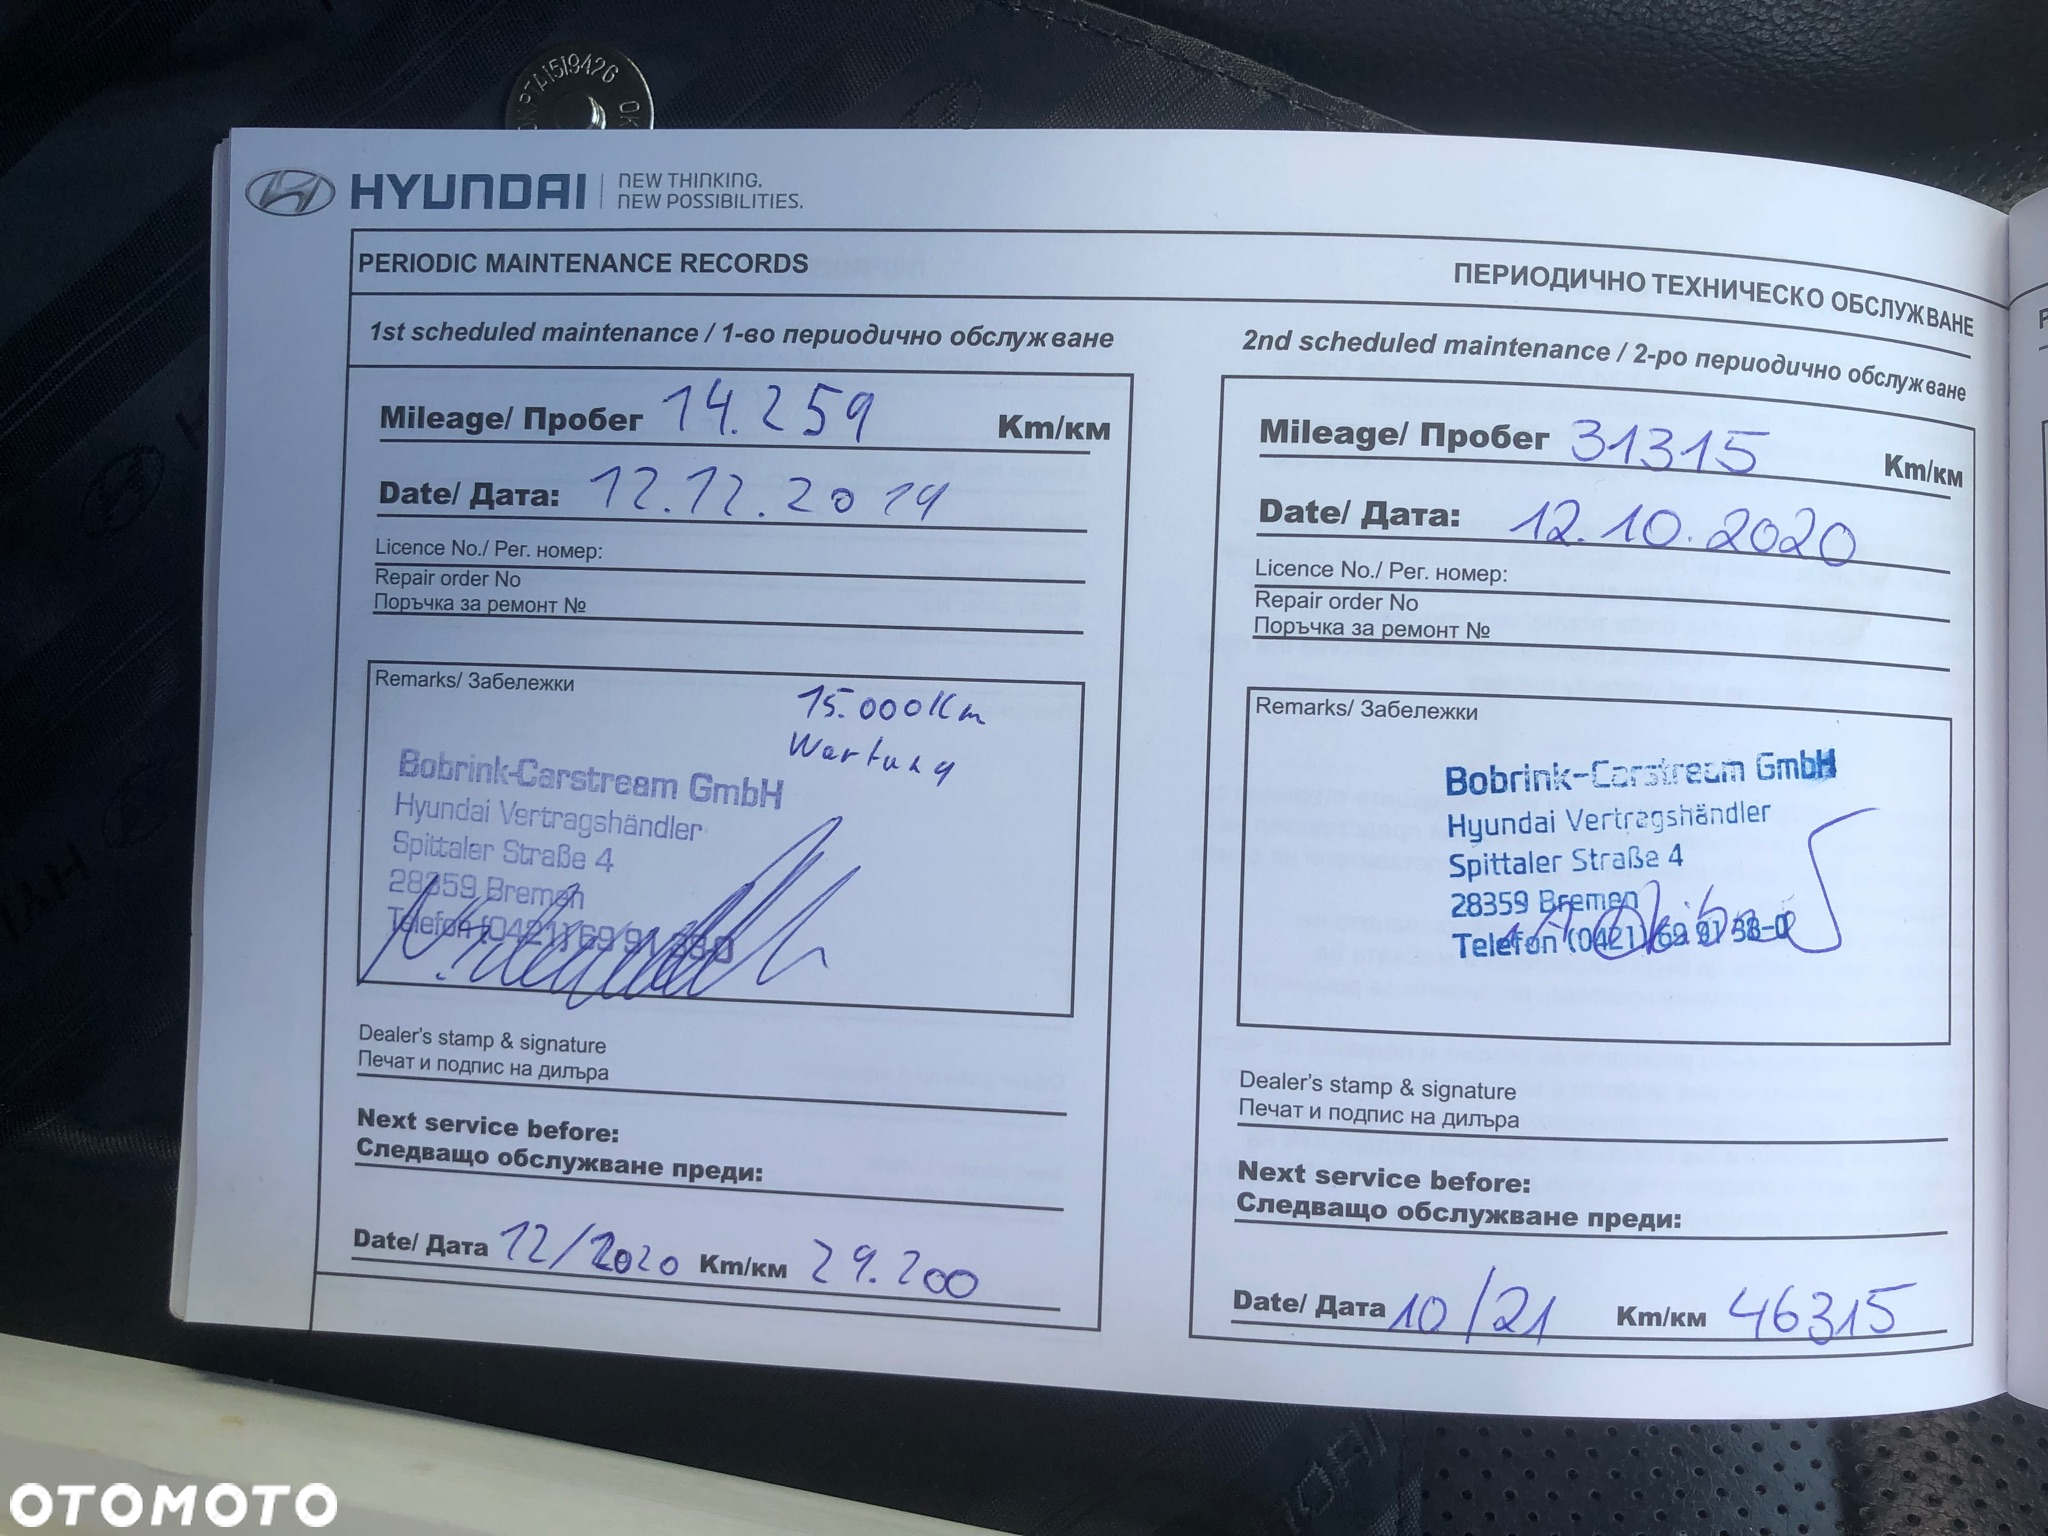 PTA1519A2G OK
HYUNDAI
NEW THINKING.
NEW POSSIBILITIES.
PERIODIC MAINTENANCE RECORDS
ПЕРИОДИЧНО ТЕХНИЧЕСКО ОБСЛУЖВАНЕ
1st scheduled maintenance / 1-во периодично обслужване
Mileage/ Пробег 14.259 Km/км
Date/ Дата: 12.12.2019
Licence No./ Рег. номер:
Repair order No
Поръчка за ремонт №
Remarks/ Забележки
15.000Km
Wartung
Bobrink-Carstream GmbH
Hyundai Vertragshändler
Spittaler Straße 4
28359 Bremen
Telefon (0421) 69 91 38-0
Dealer's stamp & signature
Печат и подпис на дилъра
Next service before:
Следващо обслужване преди:
Date/ Дата 12/2020 Km/км 29.200
2nd scheduled maintenance / 2-ро периодично обслужване
Mileage/ Пробег 31315 Km/км
Date/ Дата: 12.10.2020
Licence No./ Рег. номер:
Repair order No
Поръчка за ремонт №
Remarks/ Забележки
Bobrink-Carstream GmbH
Hyundai Vertragshändler
Spittaler Straße 4
28359 Bremen
Telefon (0421) 69 91 38-0
Dealer's stamp & signature
Печат и подпис на дилъра
Next service before:
Следващо обслужване преди:
Date/ Дата 10/21 Km/км 46315
OTOMOTO